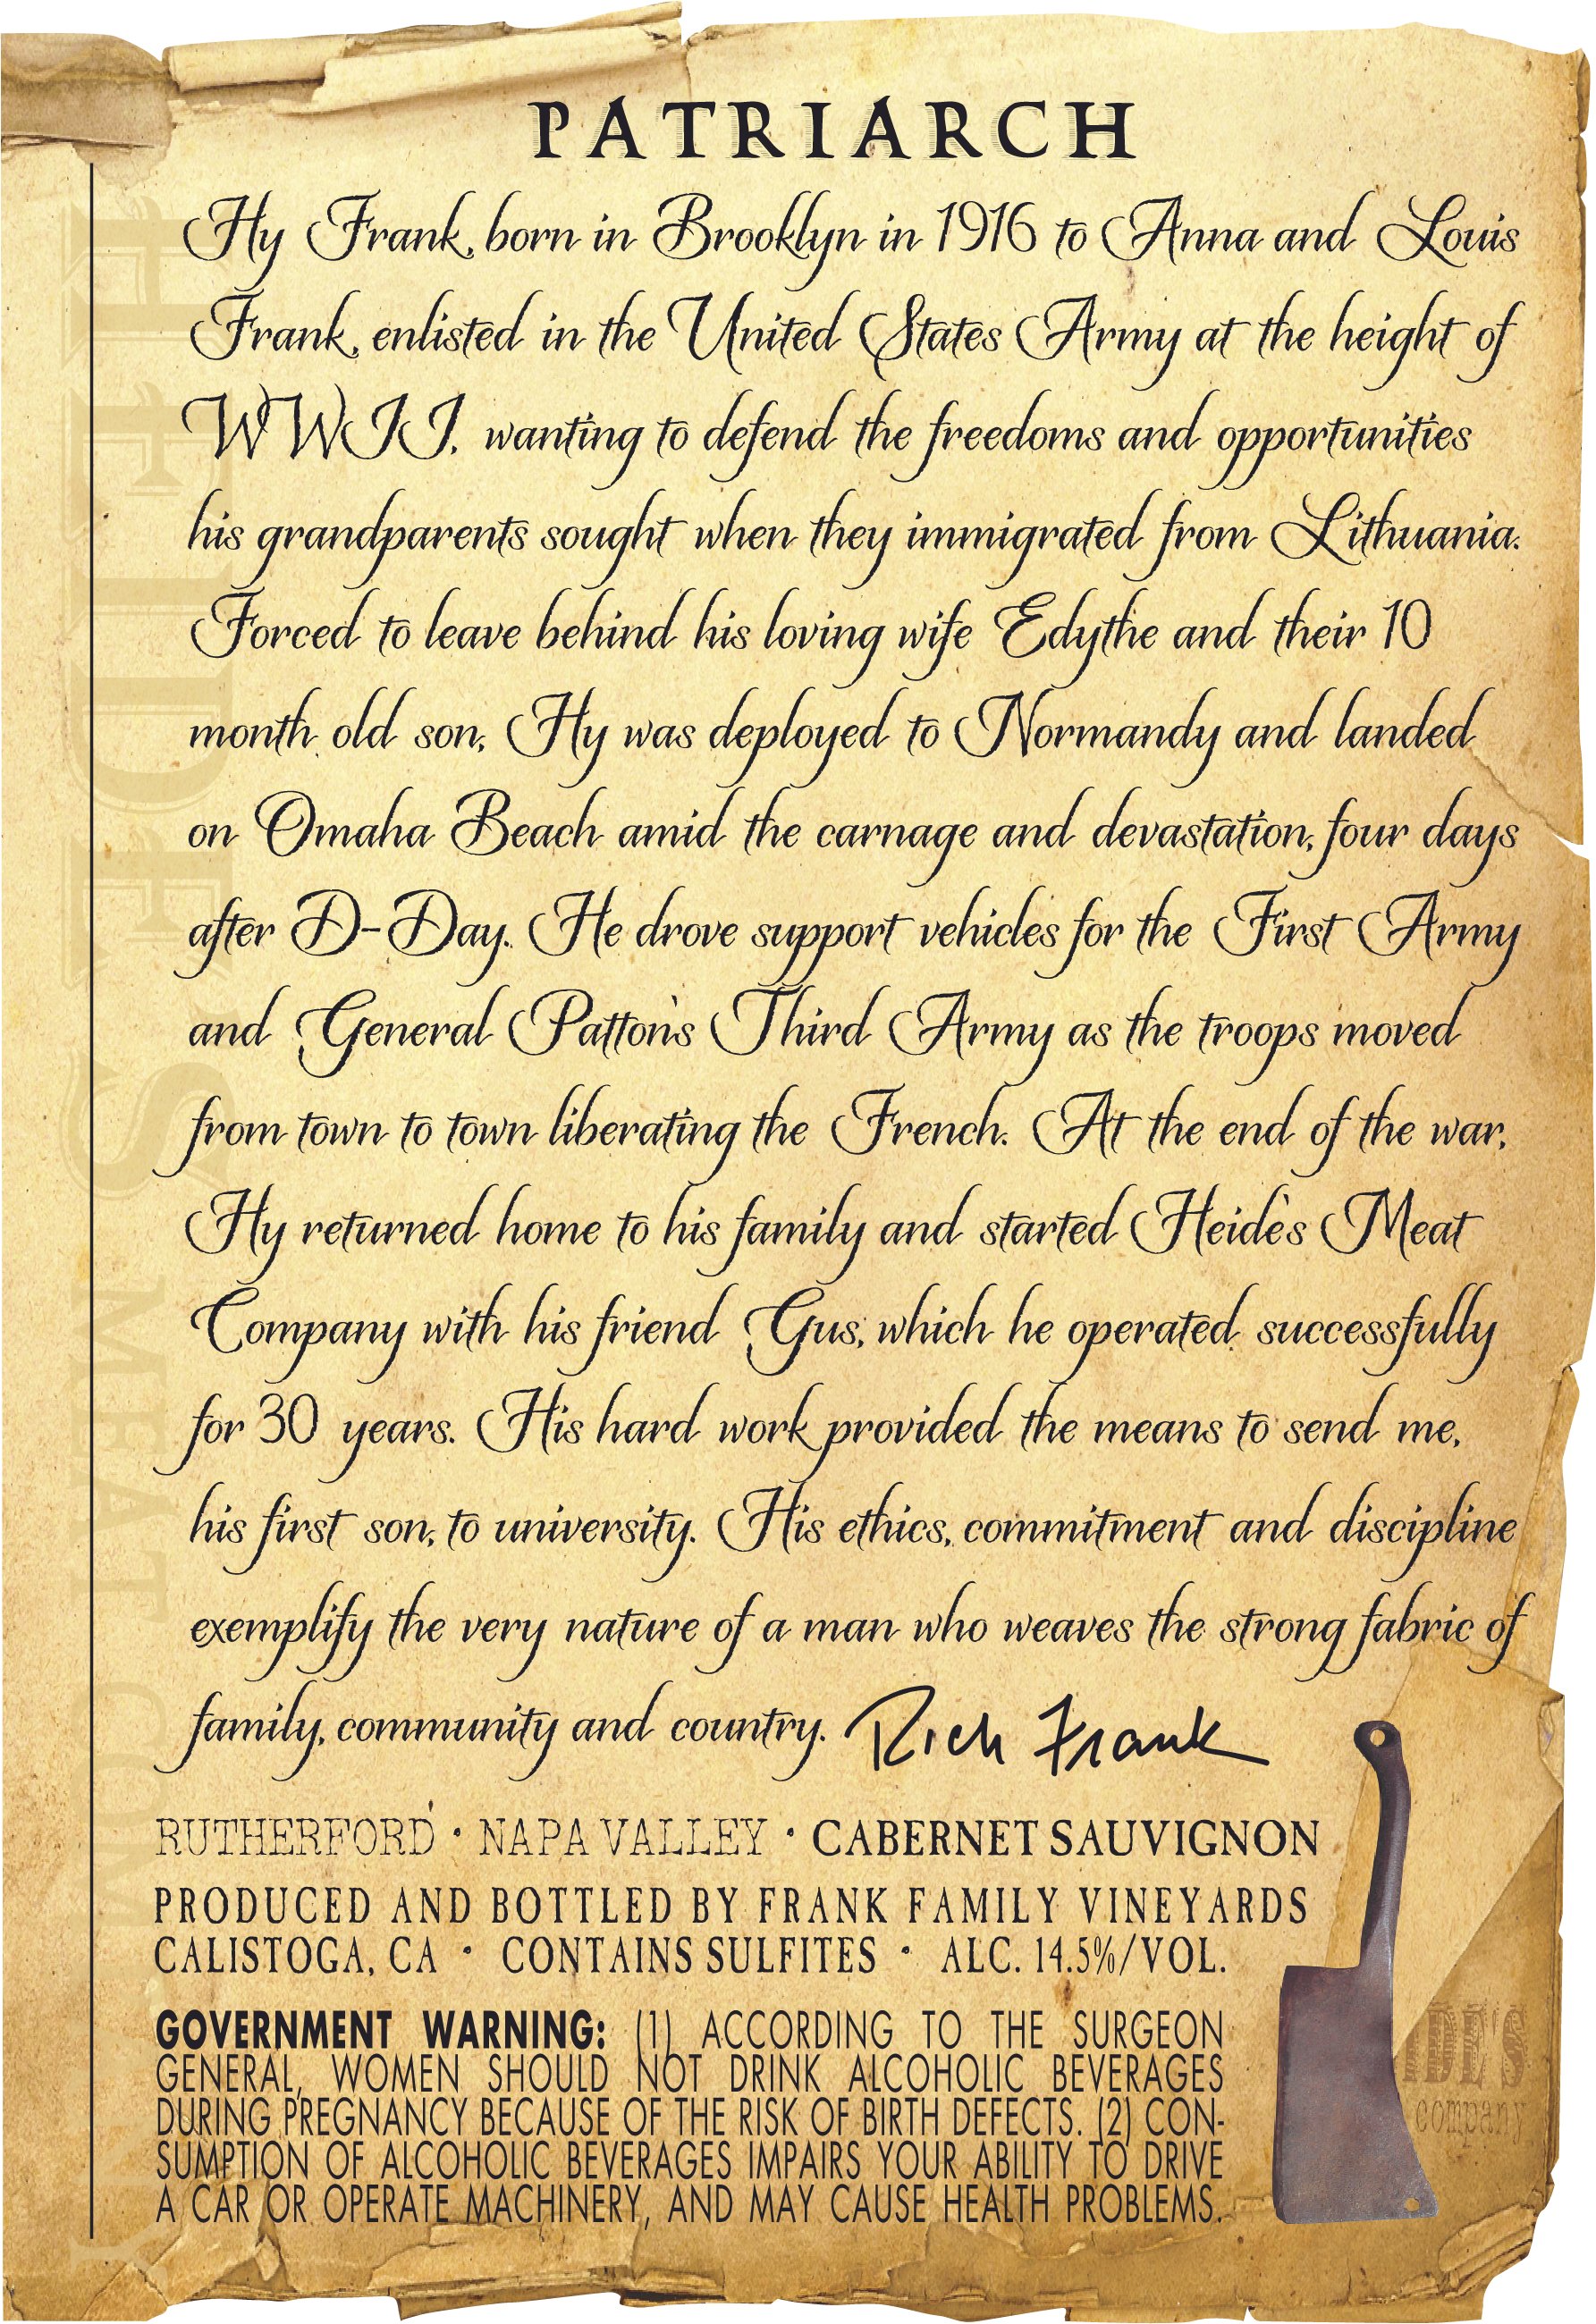 PATRIARCH
Hy Frank, born in Brooklyn in 1916 to Anna and Louis
Frank, enlisted in the United States Army at the height of
WWII, wanting to defend the freedoms and opportunities
his grandparents sought when they immigrated from Lithuania.
Forced to leave behind his loving wife Edythe and their 10
month old son, Hy was deployed to Normandy and landed
on Omaha Beach amid the carnage and devastation, four days
after D-Day. He drove support vehicles for the First Army
and General Patton's Third Army as the troops moved
from town to town liberating the French. At the end of the war,
Hy returned home to his family and started Heide's Meat
Company with his friend Gus, which he operated successfully
for 30 years. His hard work provided the means to send me,
his first son, to university. His ethics, commitment and discipline
exemplify the very nature of a man who weaves the strong fabric of
family, community and country. Rich Frank
RUTHERFORD • NAPA VALLEY • CABERNET SAUVIGNON
PRODUCED AND BOTTLED BY FRANK FAMILY VINEYARDS
CALISTOGA, CA • CONTAINS SULFITES • ALC. 14.5%/VOL.
GOVERNMENT WARNING: (1) ACCORDING TO THE SURGEON
GENERAL, WOMEN SHOULD NOT DRINK ALCOHOLIC BEVERAGES
DURING PREGNANCY BECAUSE OF THE RISK OF BIRTH DEFECTS. (2) CON-
SUMPTION OF ALCOHOLIC BEVERAGES IMPAIRS YOUR ABILITY TO DRIVE
A CAR OR OPERATE MACHINERY, AND MAY CAUSE HEALTH PROBLEMS.
IDE'S
company